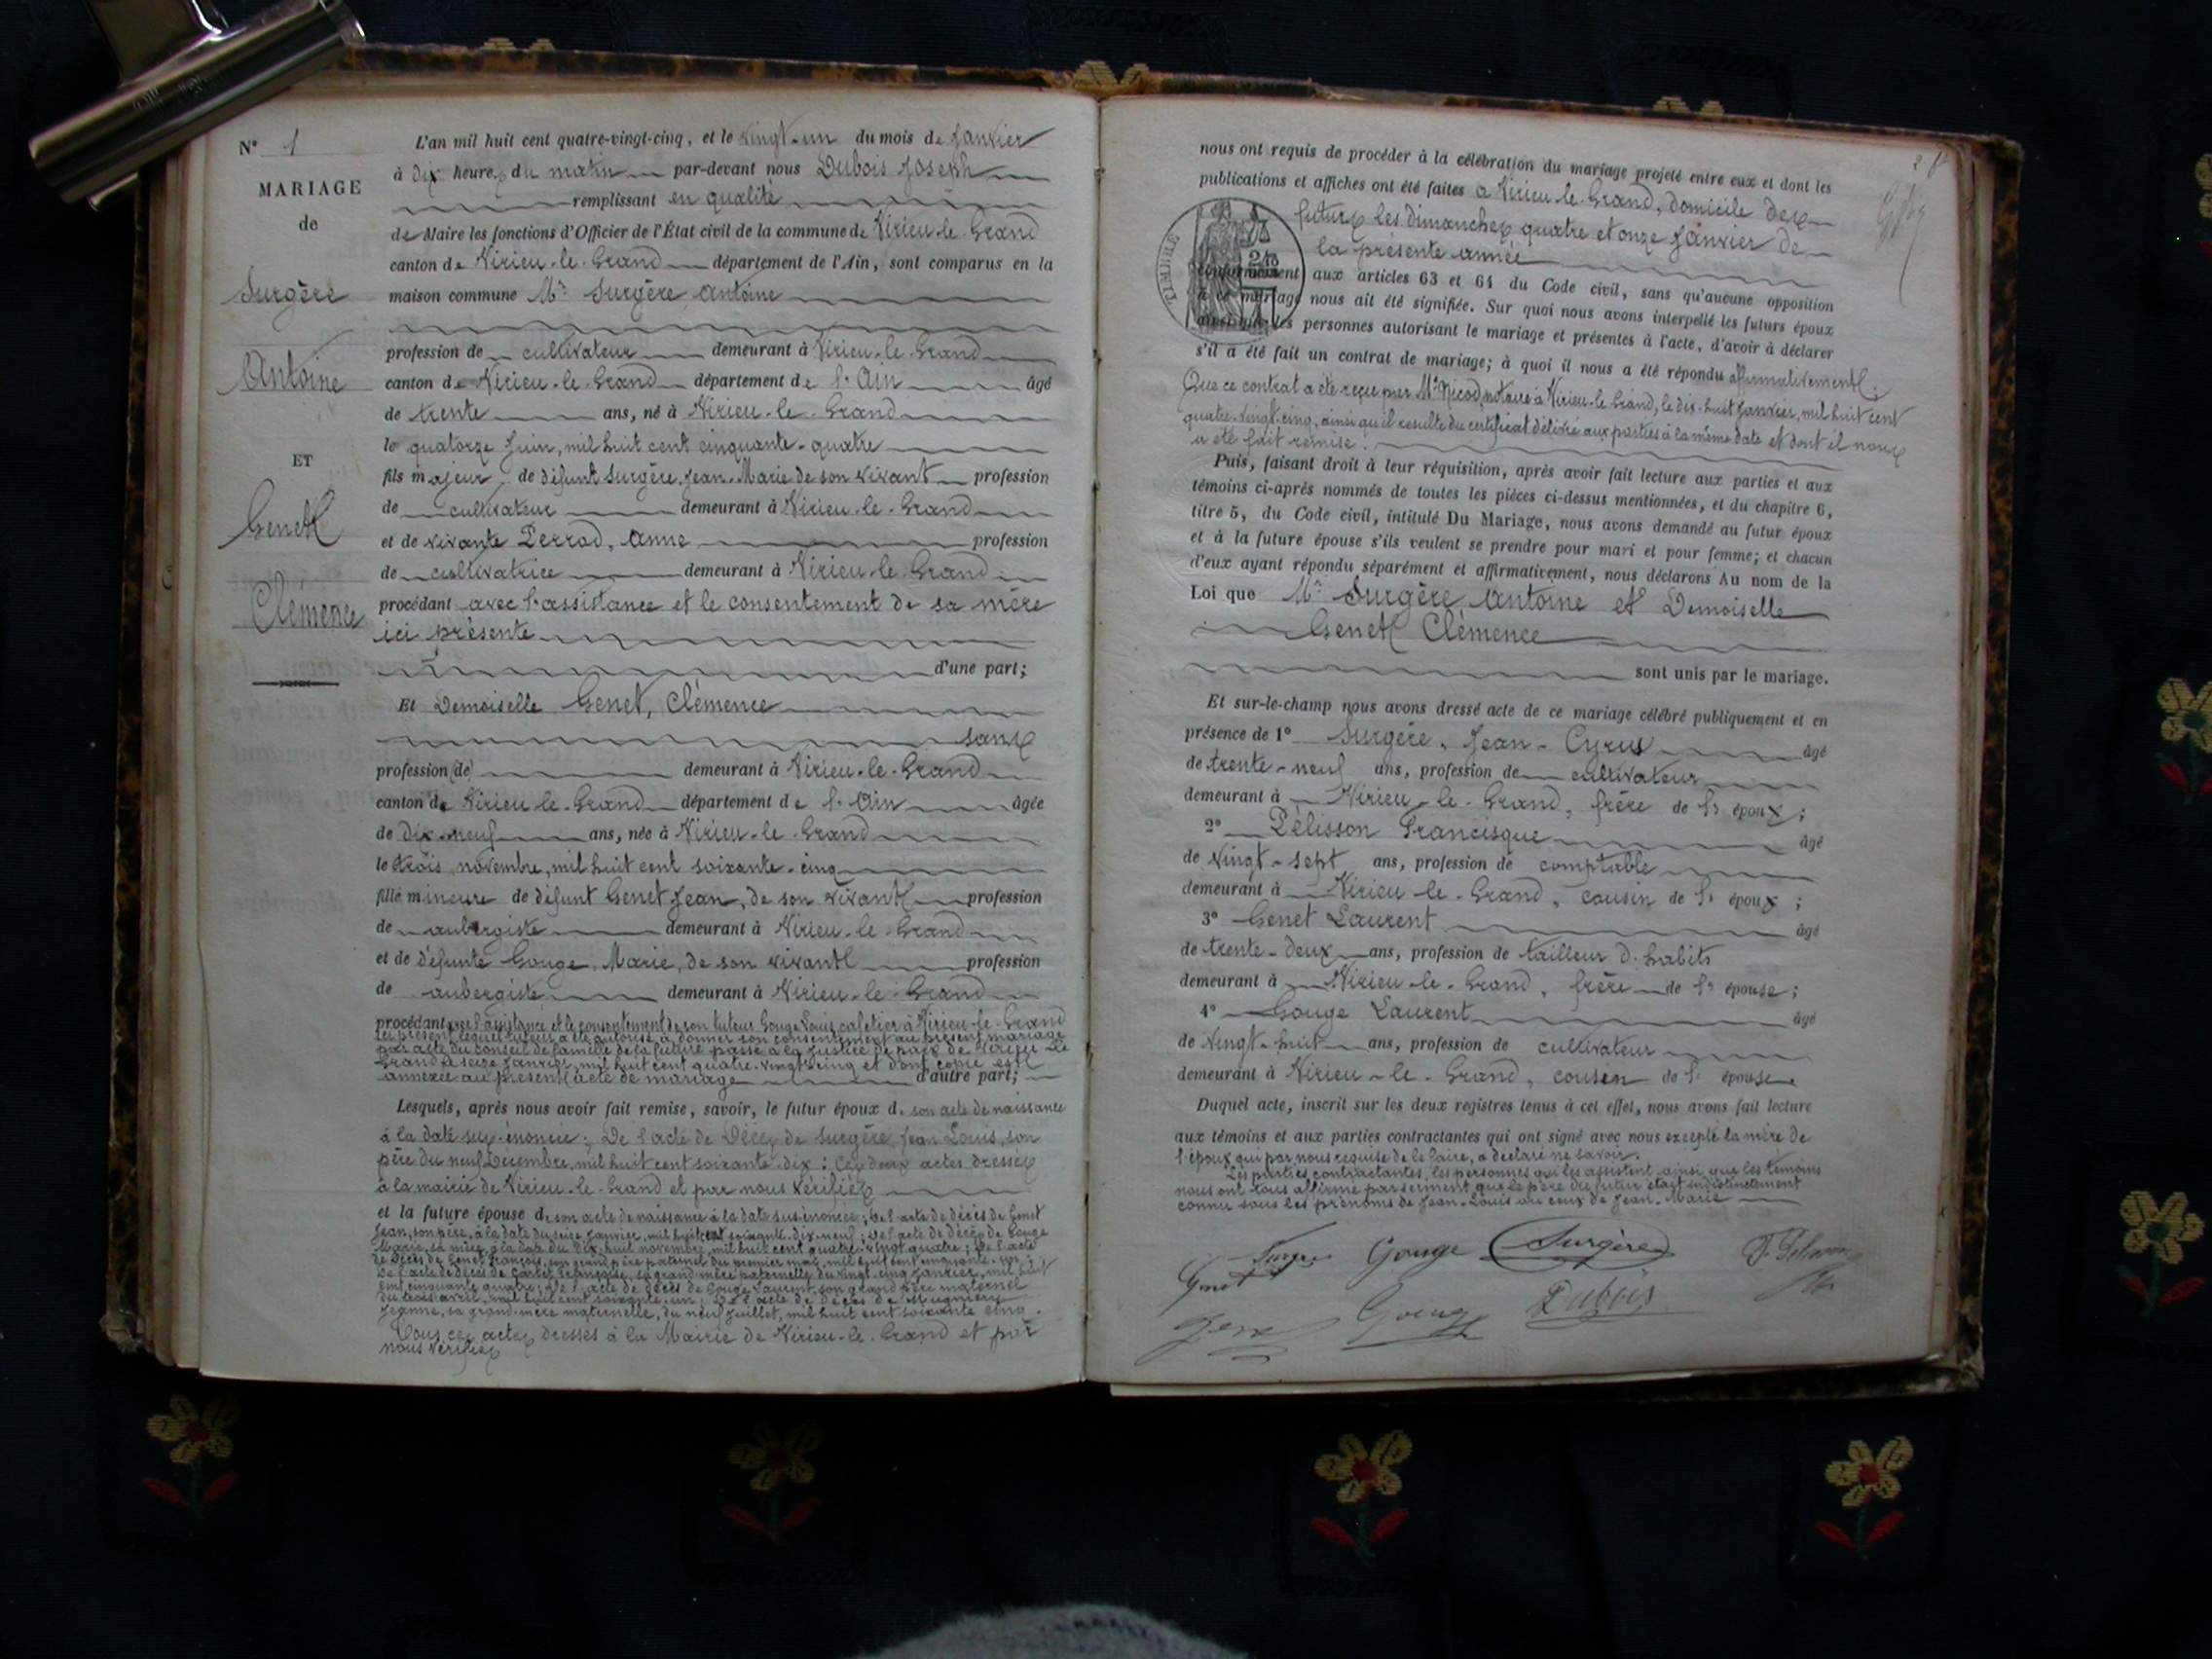 N° 1
MARIAGE
de
Surgère
Antoine
ET
Genet
Clémence
L'an mil huit cent quatre-vingt-cinq, et le vingt-un du mois de Janvier
à dix heures du matin par-devant nous Dubois Joseph
remplissant en qualité
de Maire les fonctions d'Officier de l'État civil de la commune de Virieu-le-Grand
canton de Virieu-le-Grand département de l'Ain, sont comparus en la
maison commune Mr Surgère, Antoine
profession de cultivateur demeurant à Virieu-le-Grand
canton de Virieu-le-Grand département de l'Ain âgé
de trente ans, né à Virieu-le-Grand
le quatorze Juin, mil huit cent cinquante-quatre
fils majeur de défunt Surgère, Jean-Marie de son vivant profession
de cultivateur demeurant à Virieu-le-Grand
et de vivante Perrod, Anne profession
de cultivatrice demeurant à Virieu-le-Grand
procédant avec l'assistance et le consentement de sa mère
ici présente
d'une part;
Et Demoiselle Genet, Clémence
sans
profession (de) demeurant à Virieu-le-Grand
canton de Virieu-le-Grand département de l'Ain âgée
de dix-neuf ans, née à Virieu-le-Grand
le trois novembre, mil huit cent soixante-cinq
fille mineure de défunt Genet Jean, de son vivant profession
de aubergiste demeurant à Virieu-le-Grand
et de défunte Gouge, Marie, de son vivant profession
de aubergiste demeurant à Virieu-le-Grand
procédant avec l'assistance et le consentement de son tuteur Gouge Louis, cafetier à Virieu-le-Grand
ici présent lequel tuteur a été autorisé à donner son consentement au présent mariage
par acte du conseil de famille de la future passé à la Justice de paix de Virieu-le-
Grand le seize Janvier, mil huit cent quatre-vingt-cinq et dont copie est
annexée au présent acte de mariage d'autre part;
Lesquels, après nous avoir fait remise, savoir, le futur époux de son acte de naissance
à la date sus-énoncée; De l'acte de Décès de Surgère, Jean Louis, son
père du neuf Décembre, mil huit cent soixante-dix; Ces deux actes dressés
à la mairie de Virieu-le-Grand et par nous vérifiés
et la future épouse de son acte de naissance à la date sus énoncée; De l'acte de décès de Genet
Jean, son père, à la date du seize Janvier, mil huit cent soixante-dix-neuf; De l'acte de décès de Gouge
Marie, sa mère, à la date du dix-huit novembre, mil huit cent quatre-vingt quatre; De l'acte
de décès de Genet François, son grand père paternel du premier mai, mil huit cent cinquante-un;
De l'acte de décès de Françoise, sa grand-mère paternelle du vingt-cinq Janvier, mil huit
cent cinquante quatre; De l'acte de décès de Gouge Laurent, son grand père maternel
du trois avril, mil huit cent soixante-un; De l'acte de décès de
Jeanne, sa grand-mère maternelle, du neuf Juillet, mil huit cent soixante cinq.
Tous ces actes dressés à la Mairie de Virieu-le-Grand et par
nous vérifiés
nous ont requis de procéder à la célébration du mariage projeté entre eux et dont les
publications et affiches ont été faites à Virieu-le-Grand, domicile des
futurs les dimanches quatre et onze Janvier de
la présente année
TIMBRE
conformément aux articles 63 et 64 du Code civil, sans qu'aucune opposition
à ce mariage nous ait été signifiée. Sur quoi nous avons interpellé les futurs époux
ainsi que les personnes autorisant le mariage et présentes à l'acte, d'avoir à déclarer
s'il a été fait un contrat de mariage; à quoi il nous a été répondu affirmativement:
Que ce contrat a été reçu par Me Nicod, notaire à Virieu-le-Grand, le dix-huit Janvier, mil huit cent
quatre-vingt-cinq, ainsi qu'il résulte du certificat délivré aux parties à la même date et dont il nous
a été fait remise.
Puis, faisant droit à leur réquisition, après avoir fait lecture aux parties et aux
témoins ci-après nommés de toutes les pièces ci-dessus mentionnées, et du chapitre 6,
titre 5, du Code civil, intitulé Du Mariage, nous avons demandé au futur époux
et à la future épouse s'ils veulent se prendre pour mari et pour femme; et chacun
d'eux ayant répondu séparément et affirmativement, nous déclarons Au nom de la
Loi que Mr Surgère, Antoine et Demoiselle
Genet Clémence
sont unis par le mariage.
Et sur-le-champ nous avons dressé acte de ce mariage célébré publiquement et en
présence de 1° Surgère, Jean-Cyrus âgé
de trente-neuf ans, profession de cultivateur
demeurant à Virieu-le-Grand, frère de l' époux;
2° Pélisson Francisque âgé
de vingt-sept ans, profession de comptable
demeurant à Virieu-le-Grand, cousin de l' époux;
3° Genet Laurent âgé
de trente-deux ans, profession de tailleur d'habits
demeurant à Virieu-le-Grand, frère de l' épouse;
4° Gouge Laurent âgé
de vingt-huit ans, profession de cultivateur
demeurant à Virieu-le-Grand, cousin de l' épouse
Duquel acte, inscrit sur les deux registres tenus à cet effet, nous avons fait lecture
aux témoins et aux parties contractantes qui ont signé avec nous excepté la mère de
l'époux qui par nous requise de le faire, a déclaré ne savoir.
Les parties contractantes, les personnes qui les assistent ainsi que les témoins
nous ont tous affirmé par serment que le père du futur était indistinctement
connu sous les prénoms de Jean-Louis ou ceux de Jean-Marie
Gouge Surgère
Genet
Gouge Dubois